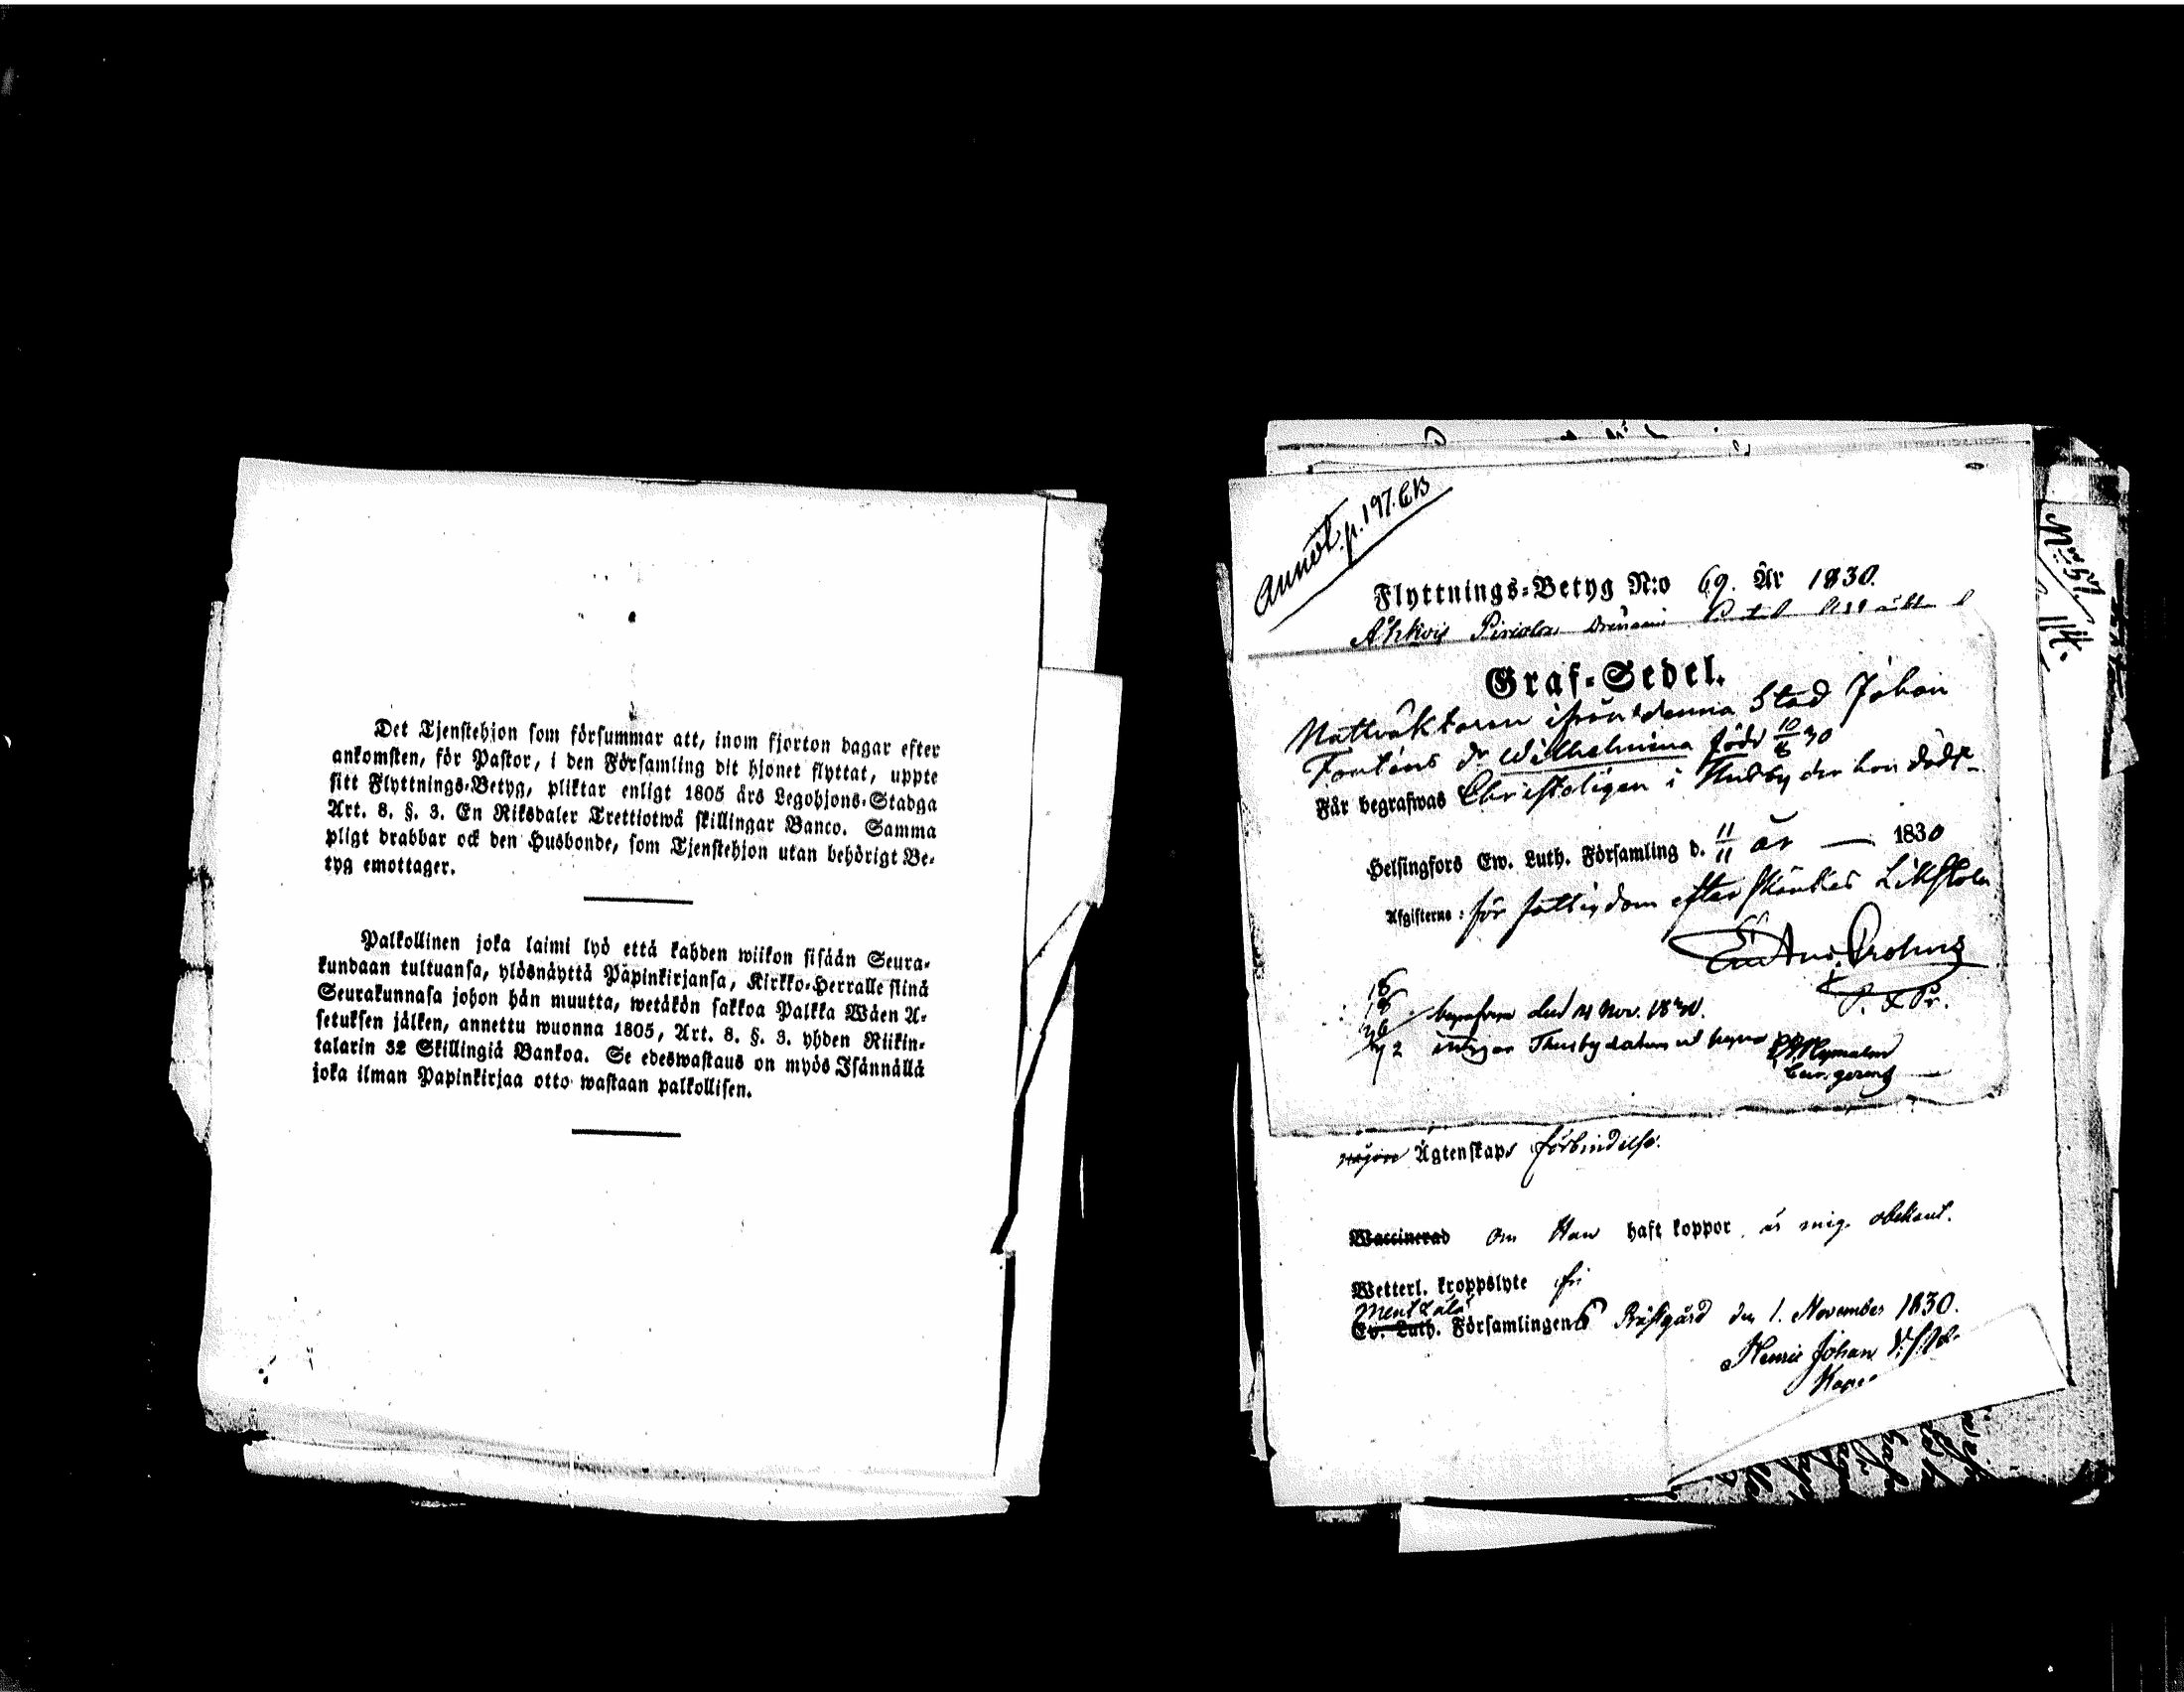 Det Tjenstehjon som försummar att, inom fjorton dagar efter
ankomsten, för Pastor, i den Församling dit hjonet flyttat, uppte
sitt Flyttnings-Betyg, pliktar enligt 1805 års Legohjons-Stadga
Art. 8. §. 3. En Riksdaler Trettiotwå skillingar Banco. Samma
pligt drabbar ock den Husbonde, som Tjenstehjon utan behörigt Be-
tyg emottager.
Palkollinen joka laimi lyö että kahden wiikon sisään Seura-
kundaan tultuansa, ylösnäyttä Papinkirjansa, Kirkko-Herralle siinä
Seurakunnasa johon hän muutta, wetäkön sakkoa Palkka Wäen A-
setuksen jälken, annettu wuonna 1805, Art. 8. §. 3. yhden Riikin-
talarin 32 Skillingiä Bankoa. Se edeswastaus on myös Isännällä
joka ilman Papinkirjaa otto wastaan palkollisen.
Annot. p. 197. CB
Flyttnings-Betyg N:o 69. År 1830.
Graf-Sedel.
Nattväktaren ifrån denna Stad Johan
dr Wilhelmina född 10/6 30
Får begrafwas Christeligen i Thusby der hon dödt
Helsingfors Ew. Luth. Församling d. 11/11 år 1830
Afgifterne: för fattigdom efterskänktes
P. & Pr.
18
18
begrafven den 21 Nov. 1830.
Thusby
Ägtenskaps förbindelse.
Waccinerad Om Han haft koppor är mig obekant.
Wetterl. kroppslyte fri
Mentzälä
Ev. Luth. Församlingens Prästgård den 1. November 1830.
Henric Johan
N:o 57
114.